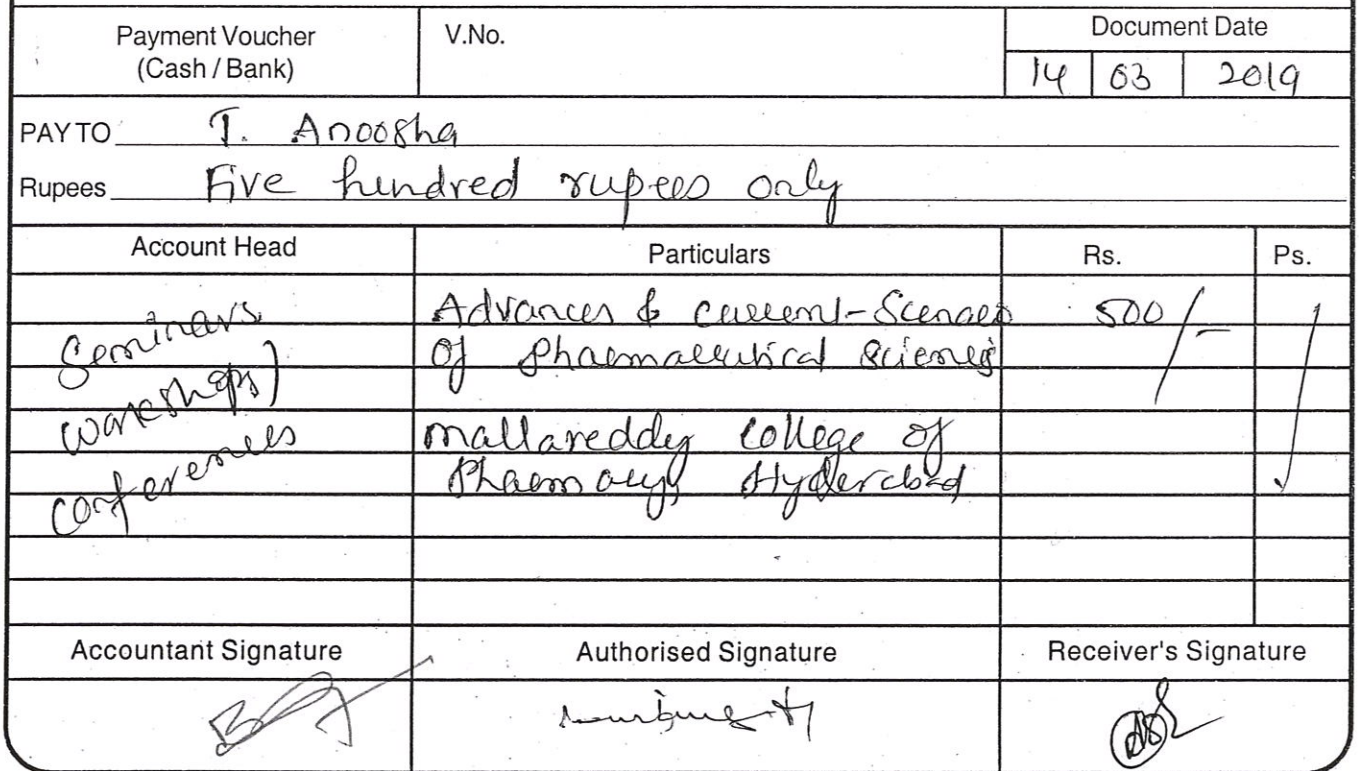 Payment Voucher
(Cash / Bank)
V.No.
Document Date
14 03 2019
PAY TO T. Anoosha
Rupees Five hundred rupees only
Account Head Particulars Rs. Ps.
Seminars
workshops)
conferences
Advances & current-Scenaeo 500/-
Of Pharmaceutical Sciences
mallareddy college of
Pharmacy, Hyderabad
Accountant Signature Authorised Signature Receiver's Signature